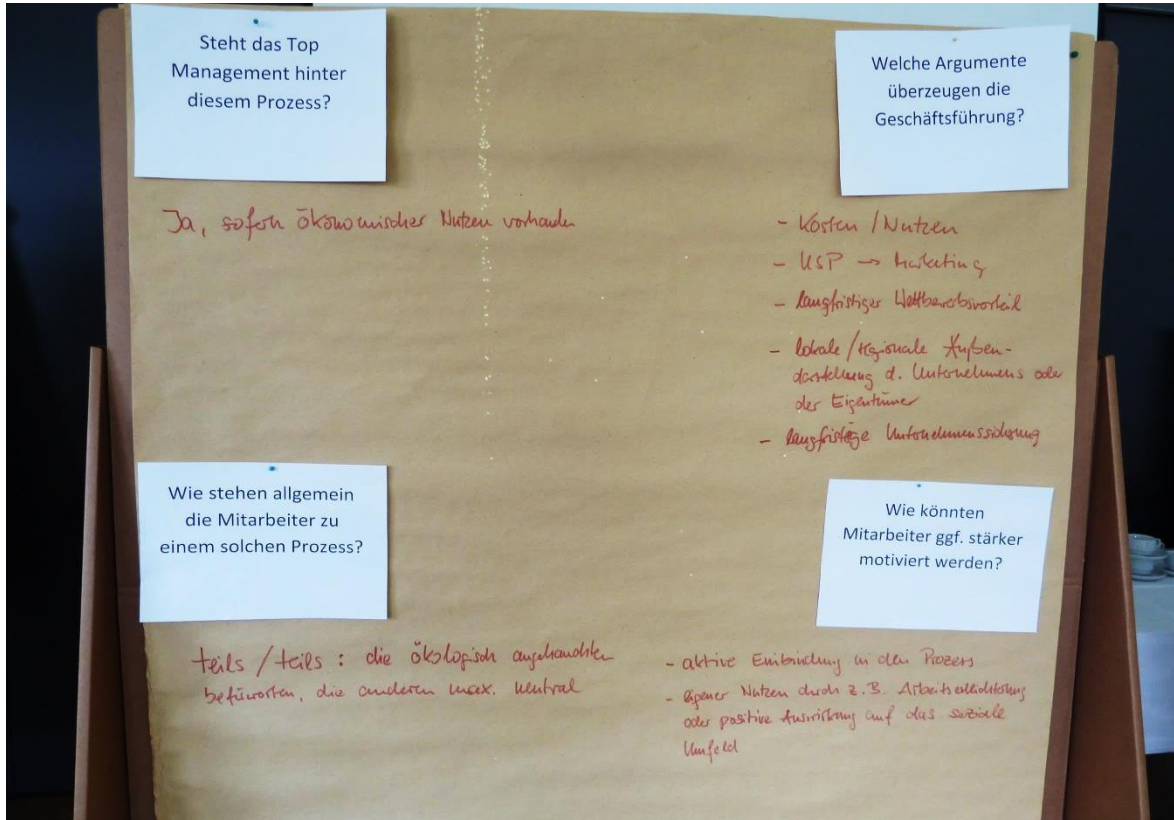 Steht das Top
Management hinter
diesem Prozess?
Ja, sofern ökonomischer Nutzen vorhanden
Welche Argumente
überzeugen die
Geschäftsführung?
- Kosten / Nutzen
- USP → Marketing
- langfristiger Wettbewerbsvorteil
- lokale / regionale Außen-
darstellung d. Unternehmens oder
der Eigentümer
- langfristige Unternehmenssicherung
Wie stehen allgemein
die Mitarbeiter zu
einem solchen Prozess?
teils / teils : die ökologisch angehauchten
befürworten, die anderen max. neutral
Wie könnten
Mitarbeiter ggf. stärker
motiviert werden?
- aktive Einbindung in den Prozess
- eigener Nutzen durch z.B. Arbeitserleichterung
oder positive Auswirkung auf das soziale
Umfeld